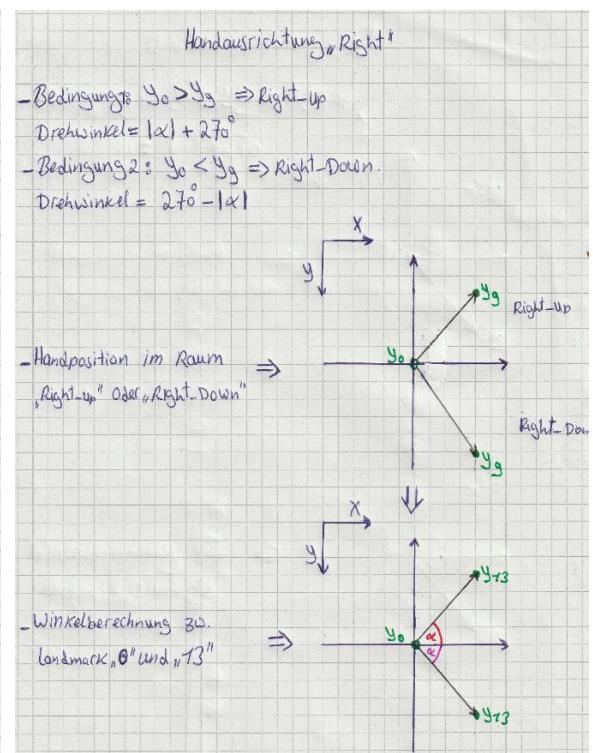 Handausrichtung „Right"
- Bedingung1: y0 > y9 ⇒ Right-Up
Drehwinkel = |α| + 270°
- Bedingung2: y0 < y9 ⇒ Right-Down.
Drehwinkel = 270° - |α|
X
y
y9
Right-Up
y0
- Handposition im Raum ⇒
„Right-up" Oder „Right-Down"
Right-Down
y9
⇓
X
y
y13
- Winkelberechnung zw. ⇒
y0
α
α
Landmark „0" und „13"
y13